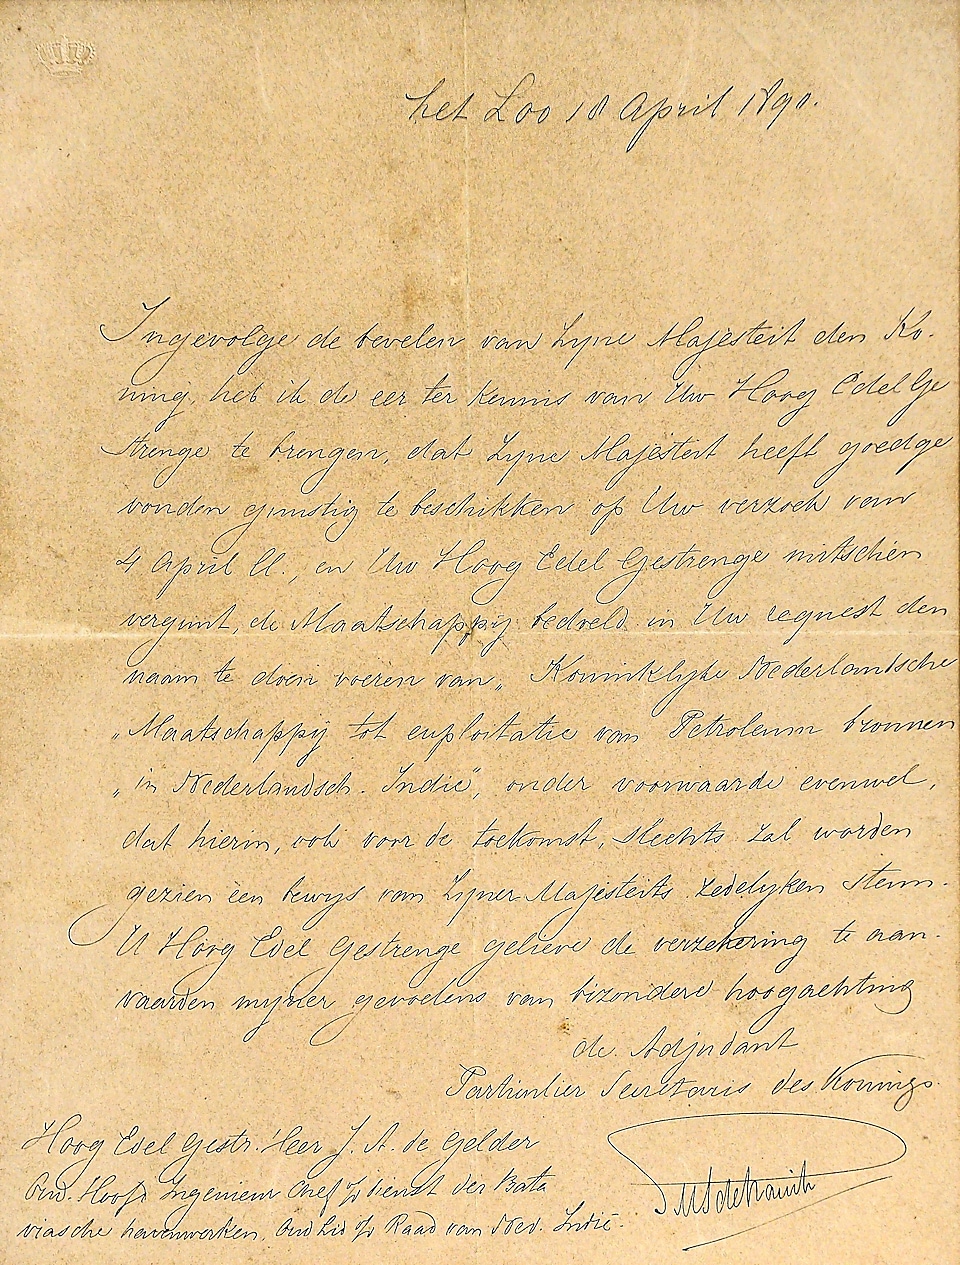 het Loo 18 April 1890.
Ingevolge de bevelen van Zyne Majesteit den Ko-
ning, heb ik de eer ter kennis van Uw Hoog Edel Ge
strenge te brengen, dat Zyne Majesteit heeft goedge
vonden gunstig te beschikken op Uw verzoek van
4 April ll., en Uw Hoog Edel Gestrenge mitsdien
vergunt, de Maatschappij bedoeld in Uw request den
naam te doen voeren van „Koninklyke Nederlandsche
„Maatschappij tot exploitatie van Petroleum bronnen
„in Nederlandsch-Indië", onder voorwaarde evenwel,
dat hierin, ook voor de toekomst, slechts zal worden
gezien een bewys van Zyner Majesteits zedelyken steun.
U Hoog Edel Gestrenge gelieve de verzekering te aan-
vaarden myner gevoelens van bizondere hoogachting
de Adjudant
Particulier Secretaris des Konings.
Hoog Edel Gestr. Heer J. A. de Gelder
Oud. Hoofd Ingenieur Chef v/d dienst der Bata
viasche havenwerken, Oud Lid v/d Raad van Ned. Indië.